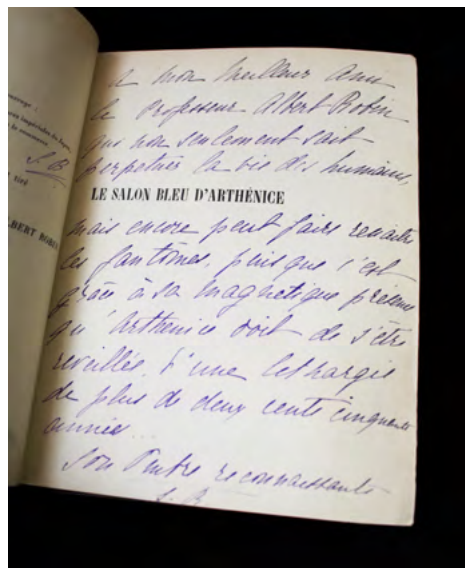 ouvrage :
S. B
tiré
BERT ROBIN
à mon meilleur ami
le Professeur Albert Robin
qui non seulement sait
perpétuer la vie des humains,
LE SALON BLEU D'ARTHÉNICE
mais encore peut faire renaitre
les fantômes, puisque c'est
grâce à sa magnetique présence
qu'Arthénice doit de s'être
reveillée, d'une lethargie
de plus de deux cents cinquante
années...
Son reconnaissante
S. B